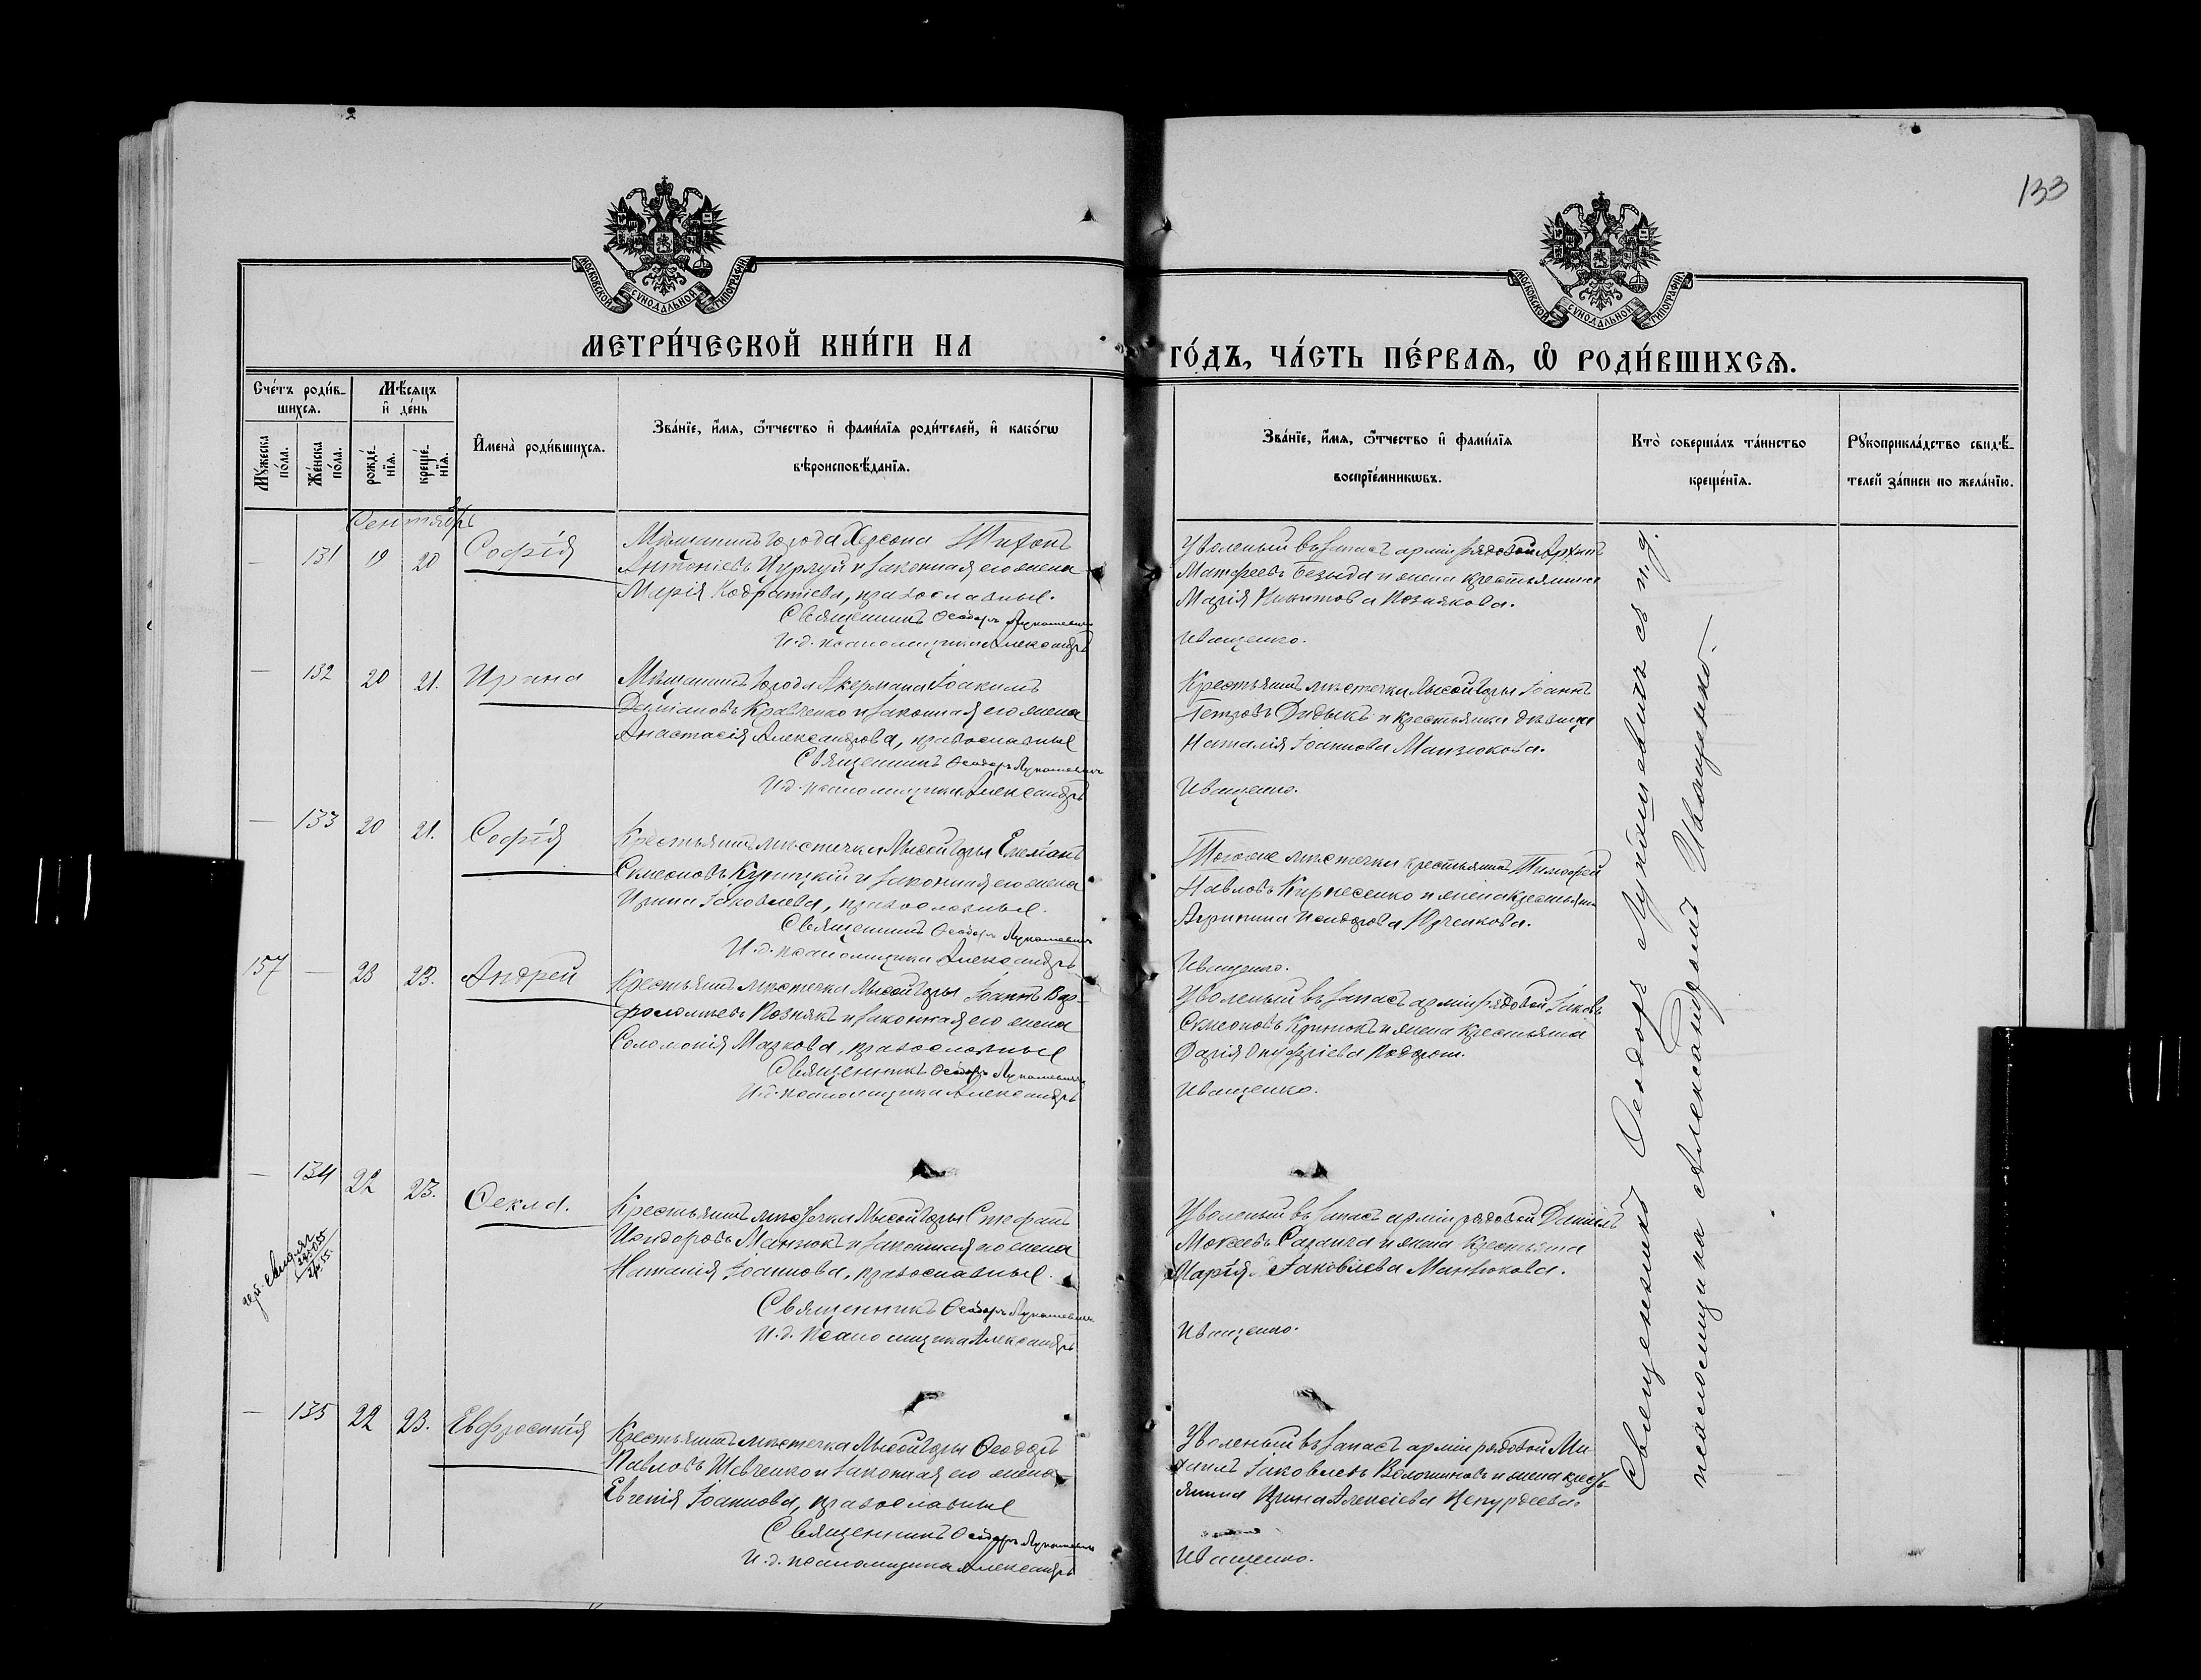 133
МОСКОВСКОЙ СѴНОДАЛЬНОЙ ТИПОГРАФІИ
МОСКОВСКОЙ СѴНОДАЛЬНОЙ ТИПОГРАФІИ
МЕТРИ́ЧЕСКОЙ КНИ́ГИ НА ГО́ДЪ, ЧА́СТЬ ПЕ́РВАѦ, Ѽ РОДИ́ВШИХСѦ.
Сче́тъ роди́в-
шихсѧ.
Мѣ́сяцъ
и҆ де́нь
Мꙋ́жеска
по́ла.
Же́нска
по́ла.
рожде́-
нїѧ.
креще́-
нїѧ.
И҆мена̀ роди́вшихсѧ.
Зва́нїе, и҆́мѧ, ѻ҆́тчество и҆ фами́лїѧ роди́телей, и҆ како́гѡ
вѣроисповѣ́данїѧ.
Зва́нїе, и҆́мѧ, ѻ҆́тчество и҆ фами́лїѧ
воспрїе́мникѡвъ.
Кто̀ соверша́лъ та́инство
креще́нїѧ.
Рꙋкоприкла́дство свидѣ́-
телей за́писи по жела́нїю.
Сентябрь
— 131 19 20 Софія
Мѣщанинъ города Херсона Тихонъ
Антоніевъ и законная его жена
Марія Кодратіева, православные.
Священникъ Ѳеодоръ Лукашевичъ
И.д. псаломщика Александръ
Уволеный въ запасъ арміи рядовой Архипъ
Матфеевъ и жена крестьянина
Марія Никитова Познякова.
Иващенко.
— 132 20 21. Ирина
Мѣщанинъ города Акермана Іоакимъ
Даміановъ Кравченко и законная его жена
Анастасія Александрова, православные
Священникъ Ѳеодоръ Лукашевичъ
И.д. псаломщика Александръ
Крестьянинъ мѣстечка Лысой Горы Іоаннъ
Петровъ Дидыкъ и крестьянка дѣвица
Наталія Іоаннова Манзюкова.
Иващенко.
— 133 20 21. Софія
Крестьянинъ мѣстечка Лысой Горы Емеліанъ
Симеоновъ и законная его жена
Ирина Іаковлева, православные.
Священникъ Ѳеодоръ Лукашевичъ
И.д. псаломщика Александръ
Тогоже мѣстечка крестьянинъ Тимофей
Павловъ и жена крестьян.
Агрипина Исидорова Юрченкова.
Иващенко.
157 — 23 23. Андрей
Крестьянинъ мѣстечка Лысой Горы Іоаннъ Вар-
фоломеевъ Познякъ и законная его жена
Соломонія Маркова, православные
Священникъ Ѳеодоръ Лукашевичъ
И.д. псаломщика Александръ
Уволеный въ запасъ арміи рядовой Іаковъ
Симеоновъ и жена крестьяна
Дарія Онуфріева
Иващенко.
— 134 22 23. Ѳекла.
Крестьянинъ мѣстечка Лысой Горы Стефанъ
Исидоровъ Манзюкъ и законная его жена
Наталія Іоаннова, православные.
Священникъ Ѳеодоръ Лукашевичъ
И.д. псаломщика Александръ
Уволеный въ запасъ арміи рядовой Даніилъ
Мокеевъ и жена крестьяна
Марія Іаковлева Манзюкова.
Иващенко.
— 135 22 23. Евфросинія
Крестьянинъ мѣстечка Лысой Горы Ѳеодоръ
Павловъ Шевченко и законная его жена
Евгенія Іоаннова, православные
Священникъ Ѳеодоръ Лукашевичъ
И.д. псаломщика Александръ
Уволеный въ запасъ арміи рядовой Ми-
хаилъ Іаковлевъ и жена кресть-
янина Ирина Алексіева
Иващенко.
Священникъ Ѳеодоръ Лукашевичъ съ и.д.
псаломщика Александромъ Иващенко.